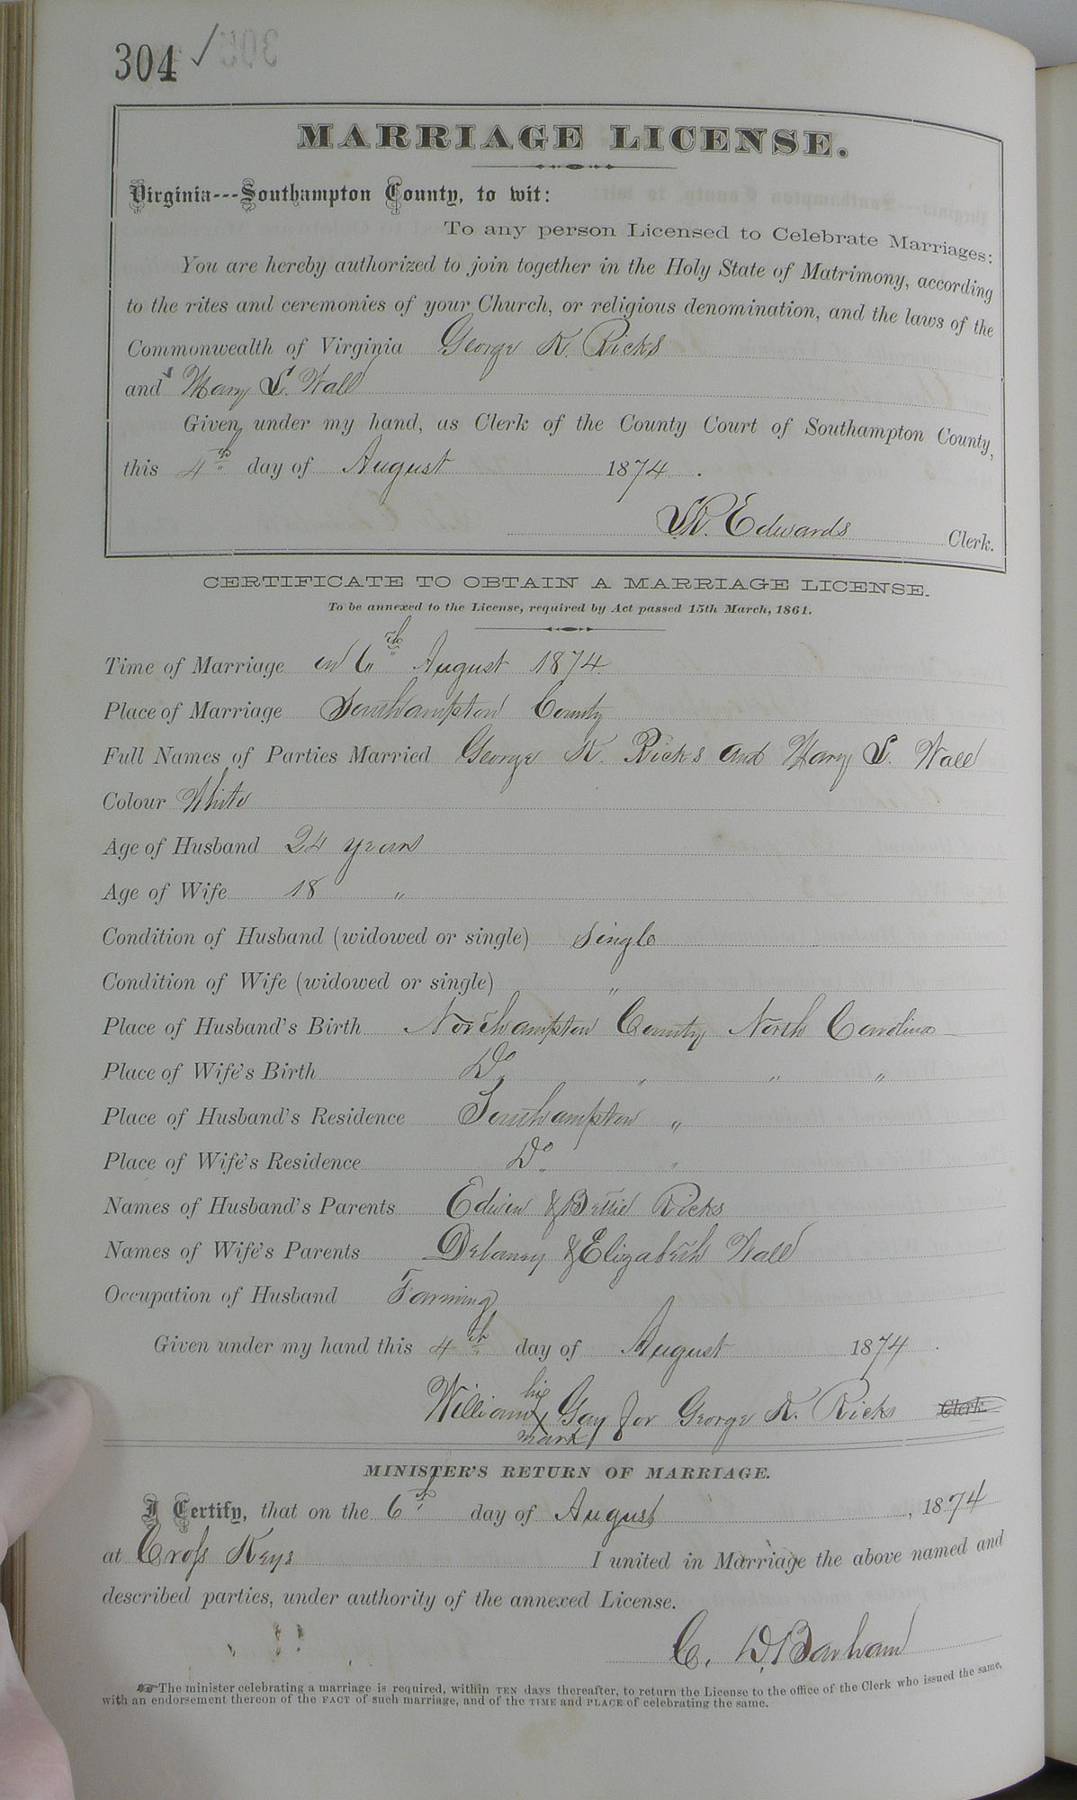 304 ✓
MARRIAGE LICENSE.
Virginia---Southampton County, to wit:
To any person Licensed to Celebrate Marriages:
You are hereby authorized to join together in the Holy State of Matrimony, according
to the rites and ceremonies of your Church, or religious denomination, and the laws of the
Commonwealth of Virginia George K. Ricks
and Mary S. Wall
Given under my hand, as Clerk of the County Court of Southampton County,
this 4th day of August 1874.
Edwards Clerk.
CERTIFICATE TO OBTAIN A MARRIAGE LICENSE.
To be annexed to the License, required by Act passed 15th March, 1861.
Time of Marriage on 6th August 1874.
Place of Marriage Southampton County
Full Names of Parties Married George K. Ricks and Mary S. Wall
Colour White
Age of Husband 24 years
Age of Wife 18 "
Condition of Husband (widowed or single) Single
Condition of Wife (widowed or single) "
Place of Husband's Birth Northampton County North Carolina
Place of Wife's Birth Do " " "
Place of Husband's Residence Southampton "
Place of Wife's Residence Do "
Names of Husband's Parents Edwin & Bettie Ricks
Names of Wife's Parents Delaney & Elizabeth Wall
Occupation of Husband Farming
Given under my hand this 4th day of August 1874.
his
William X Gay for George K. Ricks Clerk
mark
MINISTER'S RETURN OF MARRIAGE.
I Certify, that on the 6th day of August, 1874
at Cross Keys I united in Marriage the above named and
described parties, under authority of the annexed License.
C. W. Barham
☞ The minister celebrating a marriage is required, within TEN days thereafter, to return the License to the office of the Clerk who issued the same,
with an endorsement thereon of the FACT of such marriage, and of the TIME and PLACE of celebrating the same.